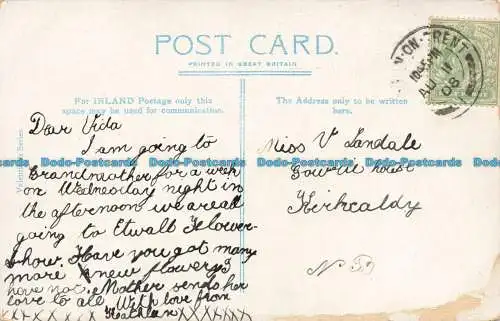 POST CARD.
PRINTED IN GREAT BRITAIN
For INLAND Postage only this
space may be used for communication.
The Address only to be written
here.
Valentine's Series
Dear Vida
I am going to
Grandmother for a week
on Wednesday night in
the afternoon we are all
going to Etwall Flower-
show. Have you got many
more X new flowers I
have not. Mother sends her
love to all With love from
Kathleen XXXXXXXXX
Miss V Landale
Gowrie house
Kirkcaldy
N 59
N-ON-TRENT
AU 11
08
Dodo-Postcards Dodo-Postcards Dodo-Postcards Dodo-Postcards